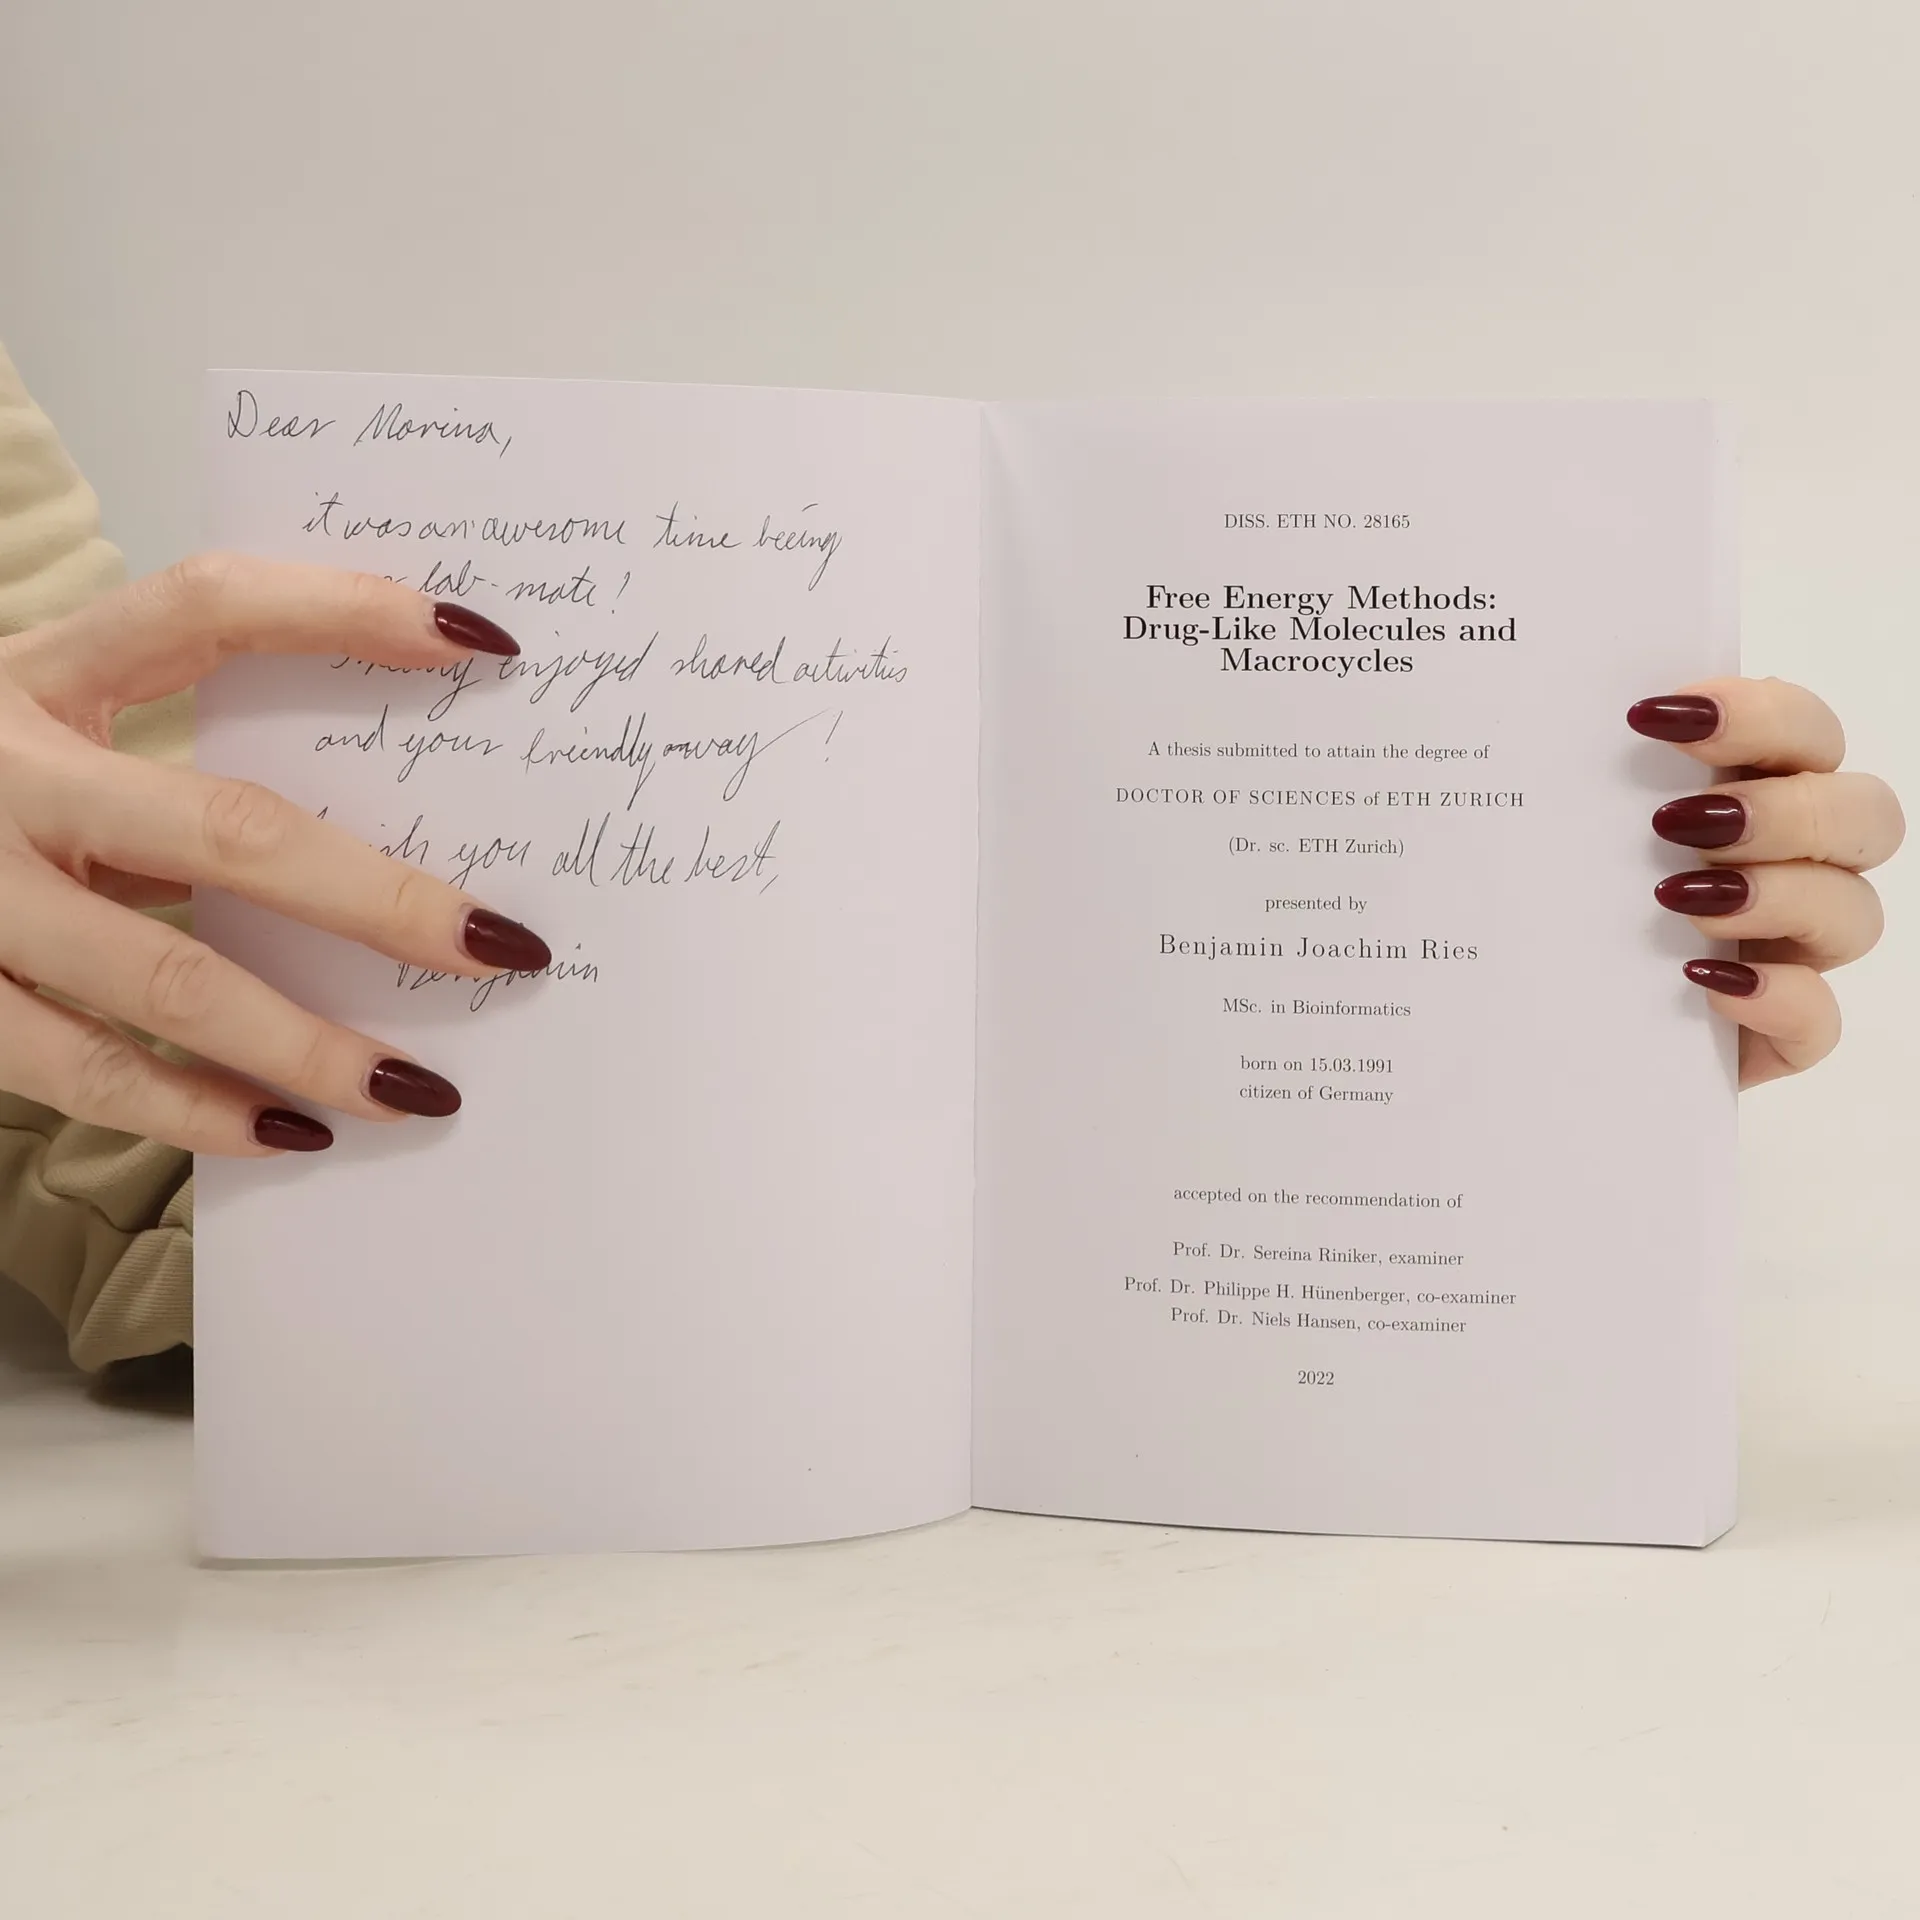 Dear Marina,
it was an awesome time beeing
lab-mate!
enjoyed shared activities
and your friendly way!
you all the best,
Benjamin
DISS. ETH NO. 28165
Free Energy Methods:
Drug-Like Molecules and
Macrocycles
A thesis submitted to attain the degree of
DOCTOR OF SCIENCES of ETH ZURICH
(Dr. sc. ETH Zurich)
presented by
Benjamin Joachim Ries
MSc. in Bioinformatics
born on 15.03.1991
citizen of Germany
accepted on the recommendation of
Prof. Dr. Sereina Riniker, examiner
Prof. Dr. Philippe H. Hünenberger, co-examiner
Prof. Dr. Niels Hansen, co-examiner
2022